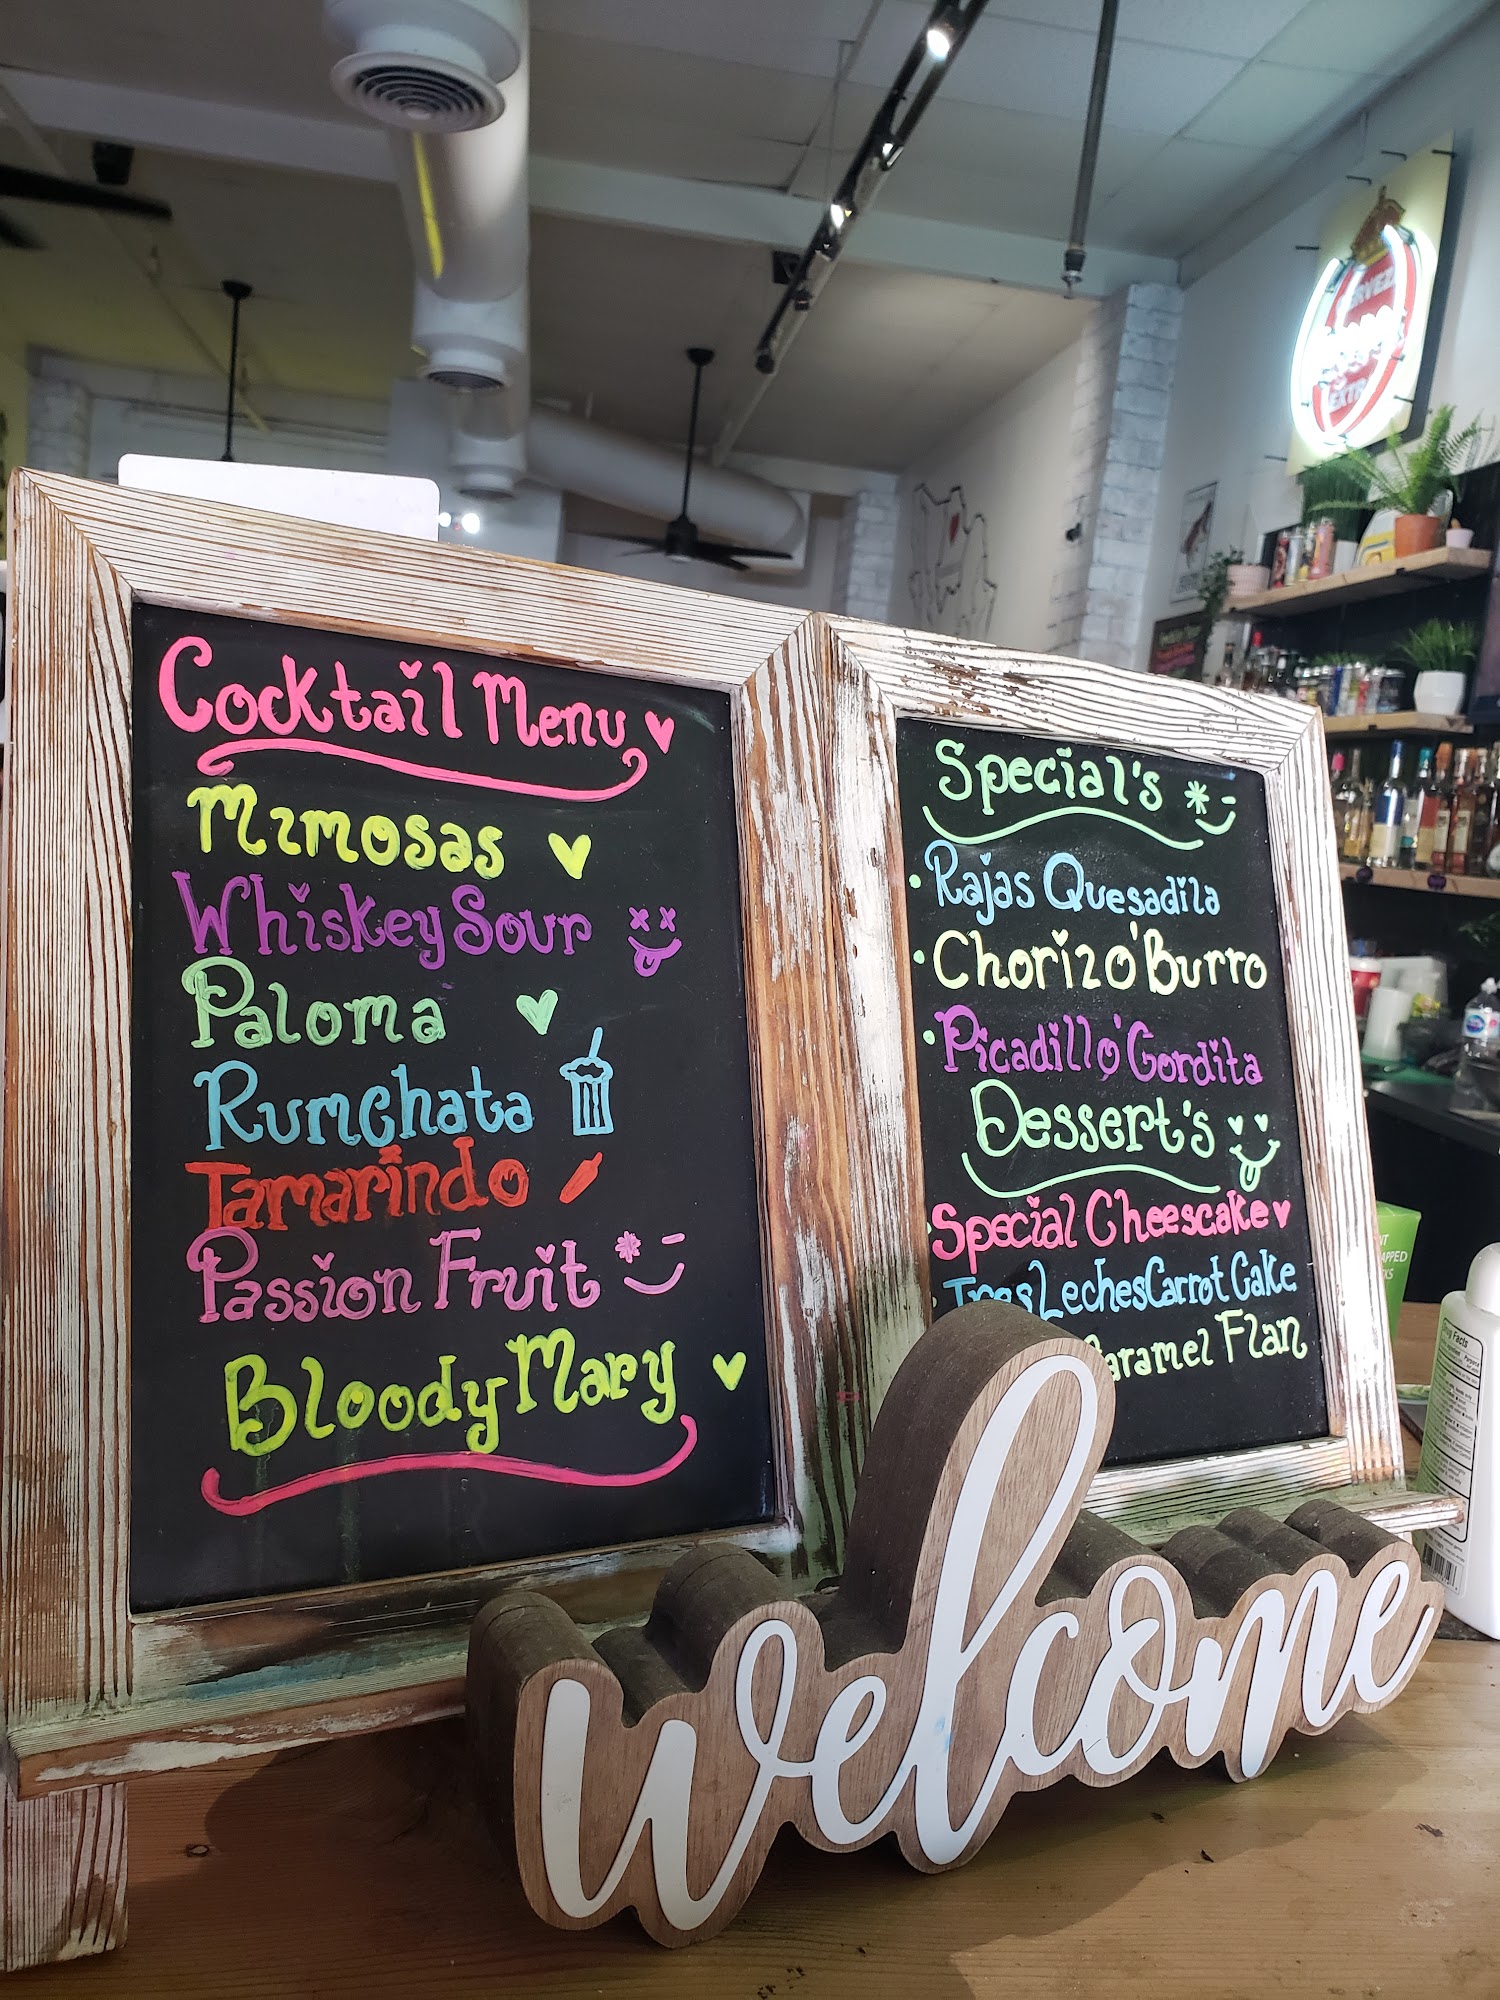 Cocktail Menu
Mimosas
Whiskey Sour
Paloma
Rumchata
Tamarindo
Passion Fruit
Bloody Mary
Special's
Rajas Quesadila
Chorizo Burro
Picadillo Gordita
Dessert's
Special Cheescake
Tres Leches Carrot Cake
Caramel Flan
welcome
CERVEZ
EXTR
Drug Facts